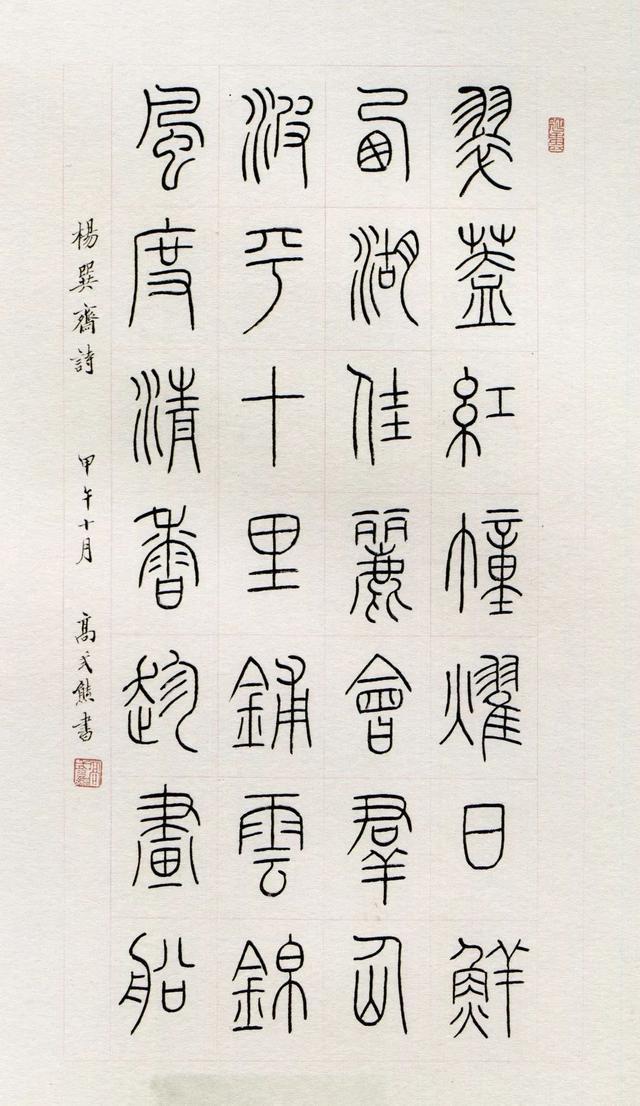 翠蓋紅幢耀日鮮
西湖佳麗會羣仙
波平十里鋪雲錦
風度清香趁畫船
楊巽齋詩 甲午十月 高式熊書